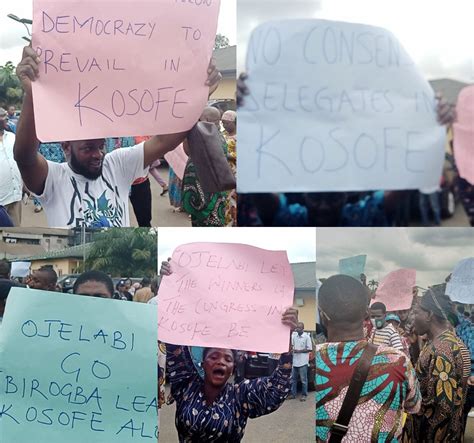 DEMOCRAZY TO
PREVAIL IN
KOSOFE
NO CONSEN
DELEGATES IN
KOSOFE
OJELABI
GO
BIROGBA LEA
KOSOFE ALO
OJELABI LET
THE WINNERS OF
THE CONGRESS IN
KOSOFE BE